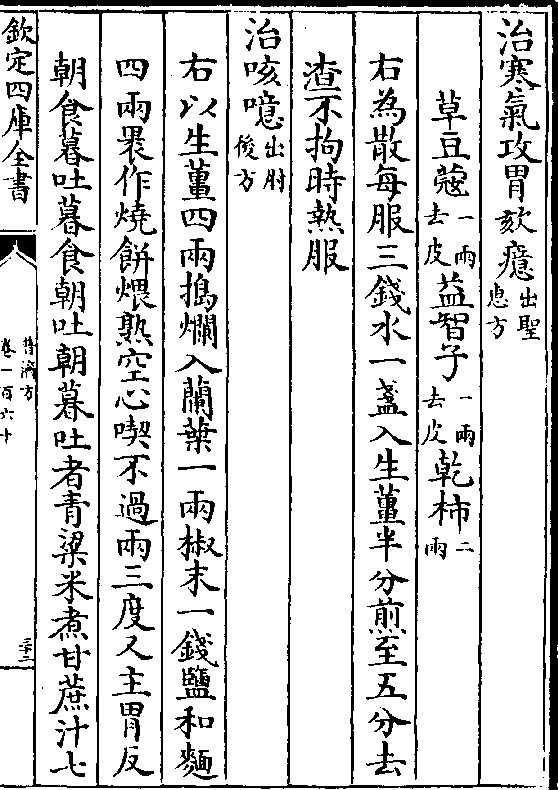 治寒氣攻胃欬癔出聖惠方
草豆蔻一兩去皮益智子一兩去皮乾柿二兩
右為散每服三錢水一盞入生薑半分煎至五分去
渣不拘時熱服
治咳噫出肘後方
右以生薑四兩搗爛入蘭葉一兩椒末一錢鹽和麵
四兩裹作燒餅煨熟空心喫不過兩三度又主胃反
朝食暮吐暮食朝吐朝暮吐者青粱米煮甘蔗汁七
欽定四庫全書
普濟方
卷一百六十
三十二